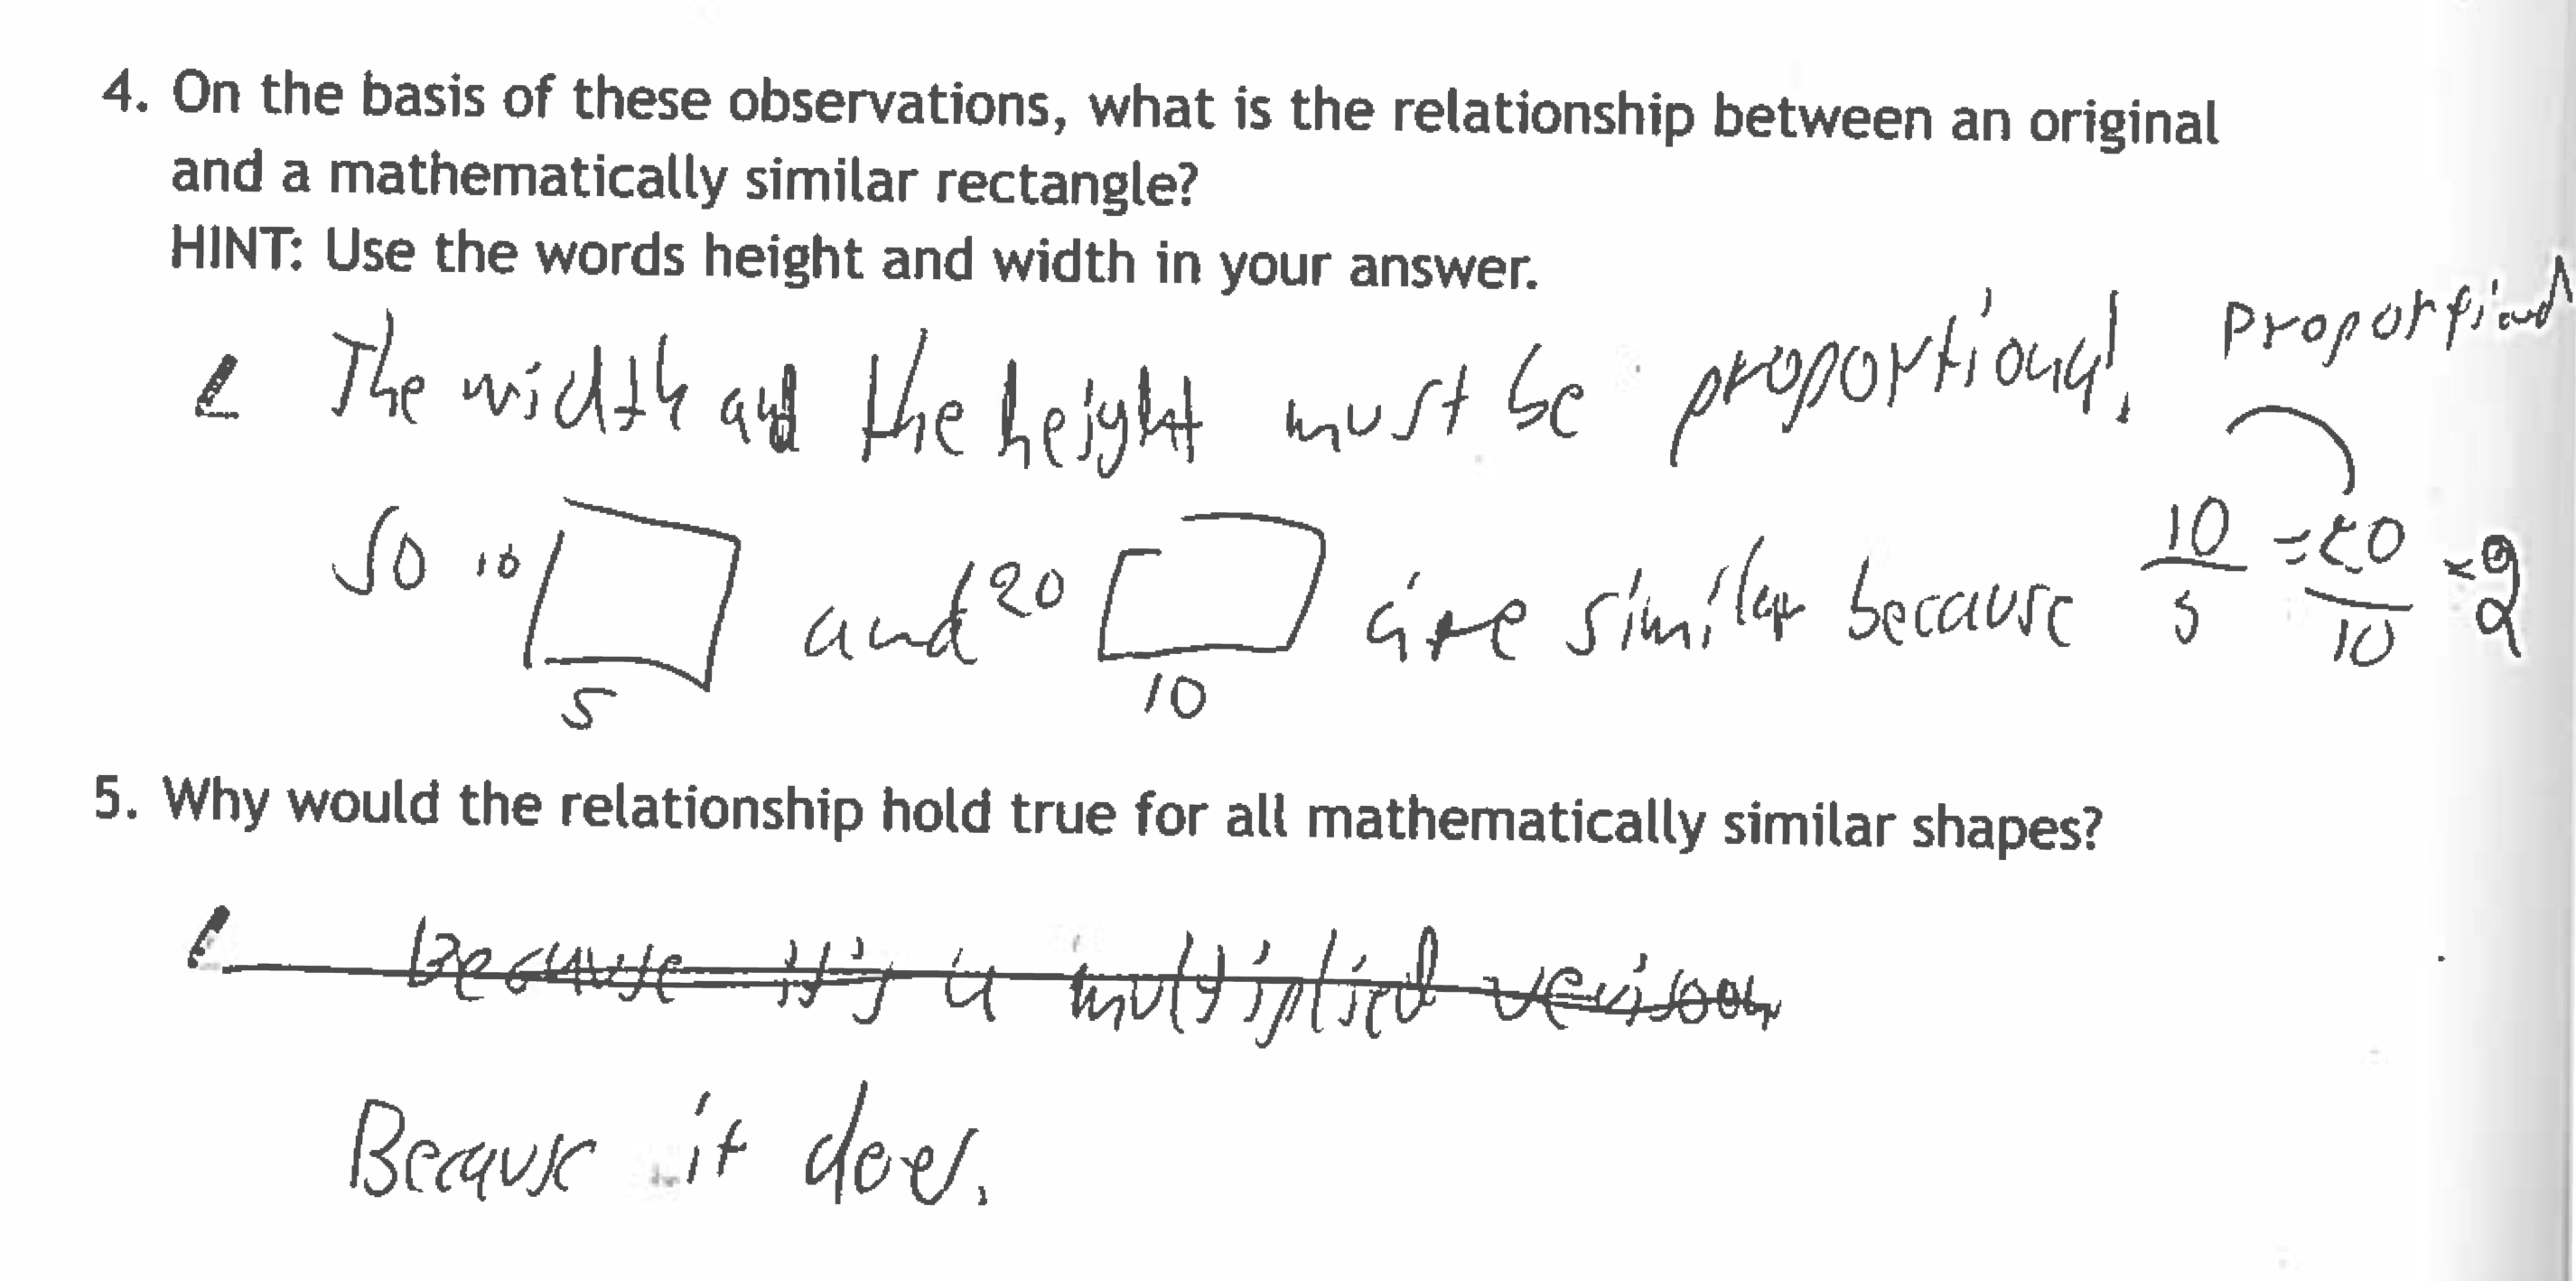 4. On the basis of these observations, what is the relationship between an original
and a mathematically similar rectangle?
HINT: Use the words height and width in your answer.
The width and the height must be proportional. Proportional
So 10 5 and 20 10 are similar because 10/5 = 20/10 ×2
5. Why would the relationship hold true for all mathematically similar shapes?
Because it's a multiplied verison
Because it does.